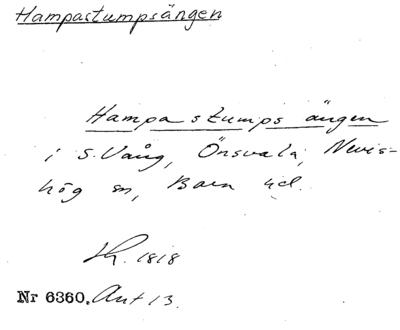 Hampastumpsängen
Hampa stumps ängen
i S. Vång, Önsvala, Nevis-
hög sn, Bara hd.
1818
Nr 6360. Ant 13.